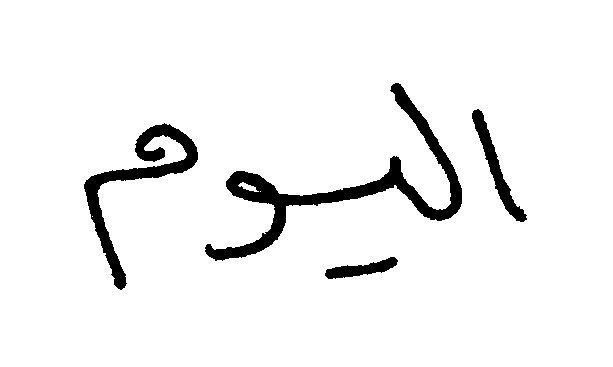 اليوم